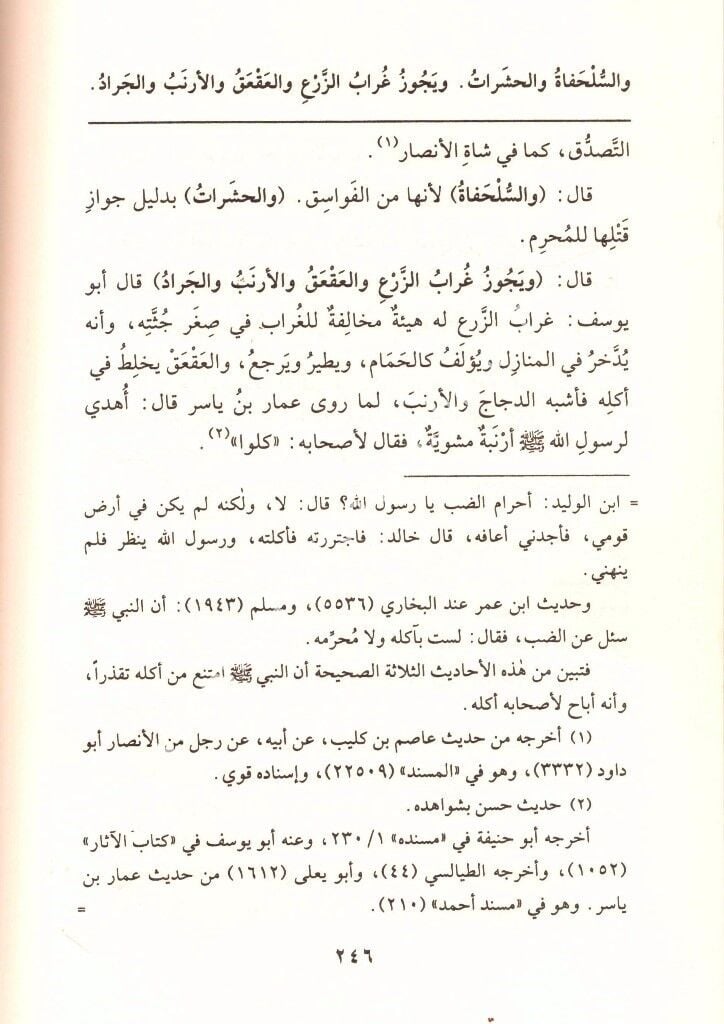 والسُّلْحَفاةُ والحشَراتُ. ويَجُوزُ غُرابُ الزَّرْعِ والعَقْعَقُ والأرنَبُ والجَرادُ.
التَّصدُّق، كما في شاةِ الأنصار(١).
قال: (والسُّلْحَفاةُ) لأنها من الفَواسِق. (والحشَراتُ) بدليل جوازِ
قَتْلِها للمُحرِم.
قال: (ويَجُوزُ غُرابُ الزَّرْعِ والعَقْعَقُ والأرنَبُ والجَرادُ) قال أبو
يوسف: غرابُ الزَّرع له هيئةٌ مخالِفةٌ للغُراب في صِغَر جُثَّتِه، وأنه
يُدَّخرُ في المنازِل ويُؤلَفُ كالحَمَام، ويطيرُ ويَرجعُ، والعَقْعَقْ يخلِطُ في
أكلِه فأشبه الدجاجَ والأرنبَ، لما روى عمار بنُ ياسر قال: أُهدي
لرسولِ الله ﷺ أرْنَبةٌ مشويَّةٌ، فقال لأصحابه: «كلوا»(٢).
= ابن الوليد: أحرام الضب يا رسول الله؟ قال: لا، ولٰكنه لم يكن في أرض
قومي، فأجدني أعافه، قال خالد: فاجتررته فأكلته، ورسول الله ينظر فلم
ينهني.
وحديث ابن عمر عند البخاري (٥٥٣٦)، ومسلم (١٩٤٣): أن النبي ﷺ
سئل عن الضب، فقال: لست بآكله ولا مُحرِّمه.
فتبين من هٰذه الأحاديث الثلاثة الصحيحة أن النبي ﷺ امتنع من أكله تقذراً،
وأنه أباح لأصحابه أكله.
(١) أخرجه من حديث عاصم بن كليب، عن أبيه، عن رجل من الأنصار أبو
داود (٣٣٣٢)، وهو في «المسند» (٢٢٥٠٩)، وإسناده قوي.
(٢) حديث حسن بشواهده.
أخرجه أبو حنيفة في «مسنده» ١/ ٢٣٠، وعنه أبو يوسف في «كتاب الآثار»
(١٠٥٢)، وأخرجه الطيالسي (٤٤)، وأبو يعلى (١٦١٢) من حديث عمار بن
ياسر. وهو في «مسند أحمد» (٢١٠). =
٢٤٦